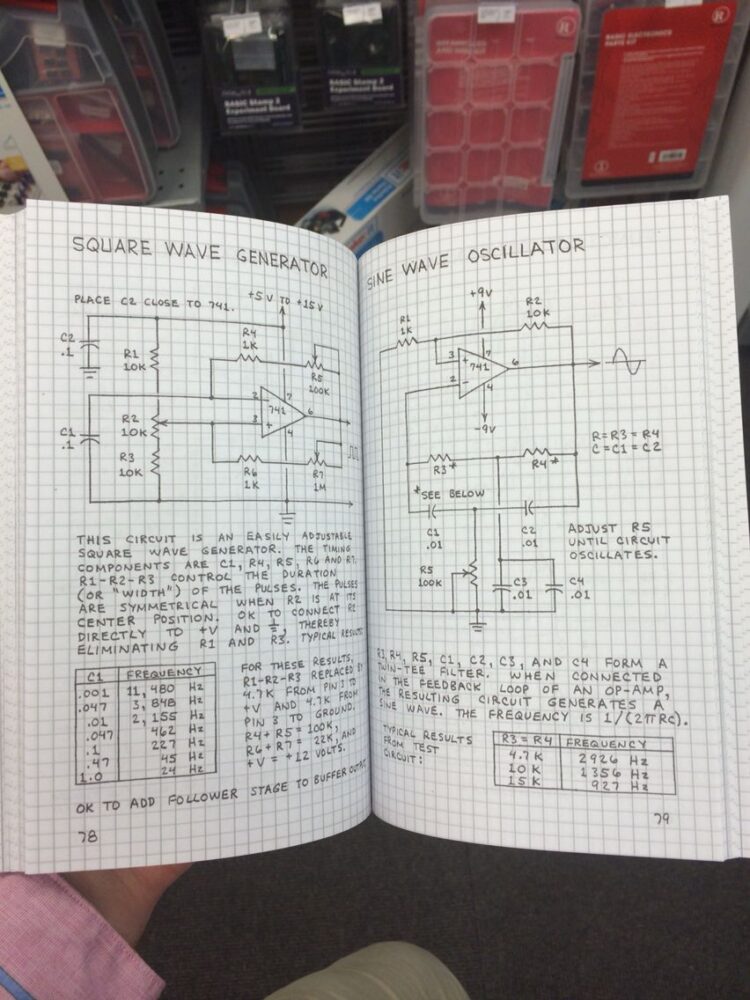 BASIC Stamp 2
Experiment Board
BASIC Stamp 2
Experiment Board
BASIC ELECTRONICS
PARTS KIT
SQUARE WAVE GENERATOR
PLACE C2 CLOSE TO 741.
+5 V TO +15V
C2
.1
R1
10K
R4
1K
R5
100K
2
7
741
6
3
4
C1
.1
R2
10K
R3
10K
R6
1K
R7
1M
THIS CIRCUIT IS AN EASILY ADJUSTABLE
SQUARE WAVE GENERATOR. THE TIMING
COMPONENTS ARE C1, R4, R5, R6 AND R7.
R1-R2-R3 CONTROL THE DURATION
(OR "WIDTH") OF THE PULSES. THE PULSES
ARE SYMMETRICAL WHEN R2 IS AT ITS
CENTER POSITION. OK TO CONNECT R2
DIRECTLY TO +V AND ⏚, THEREBY
ELIMINATING R1 AND R3. TYPICAL RESULTS
C1 FREQUENCY
.001 11,480 Hz
.047 3,848 Hz
.01 2,155 Hz
.047 462 Hz
.1 227 Hz
.47 45 Hz
1.0 24 Hz
FOR THESE RESULTS,
R1-R2-R3 REPLACED BY
4.7K FROM PIN 3 TO
+V AND 4.7K FROM
PIN 3 TO GROUND.
R4+R5 = 100K,
R6+R7 = 22K, AND
+V = +12 VOLTS.
OK TO ADD FOLLOWER STAGE TO BUFFER OUTPUT.
78
SINE WAVE OSCILLATOR
+9V
R1
1K
R2
10K
3
7
741
6
2
4
-9V
R=R3=R4
C=C1=C2
R3*
R4*
*SEE BELOW
C1
.01
C2
.01
ADJUST R5
UNTIL CIRCUIT
OSCILLATES.
R5
100K
C3
.01
C4
.01
R3, R4, R5, C1, C2, C3, AND C4 FORM A
TWIN-TEE FILTER. WHEN CONNECTED
IN THE FEEDBACK LOOP OF AN OP-AMP,
THE RESULTING CIRCUIT GENERATES A
SINE WAVE. THE FREQUENCY IS 1/(2πRC).
TYPICAL RESULTS
FROM TEST
CIRCUIT:
R3 = R4 FREQUENCY
4.7K 2926 Hz
10 K 1356 Hz
15 K 927 Hz
79